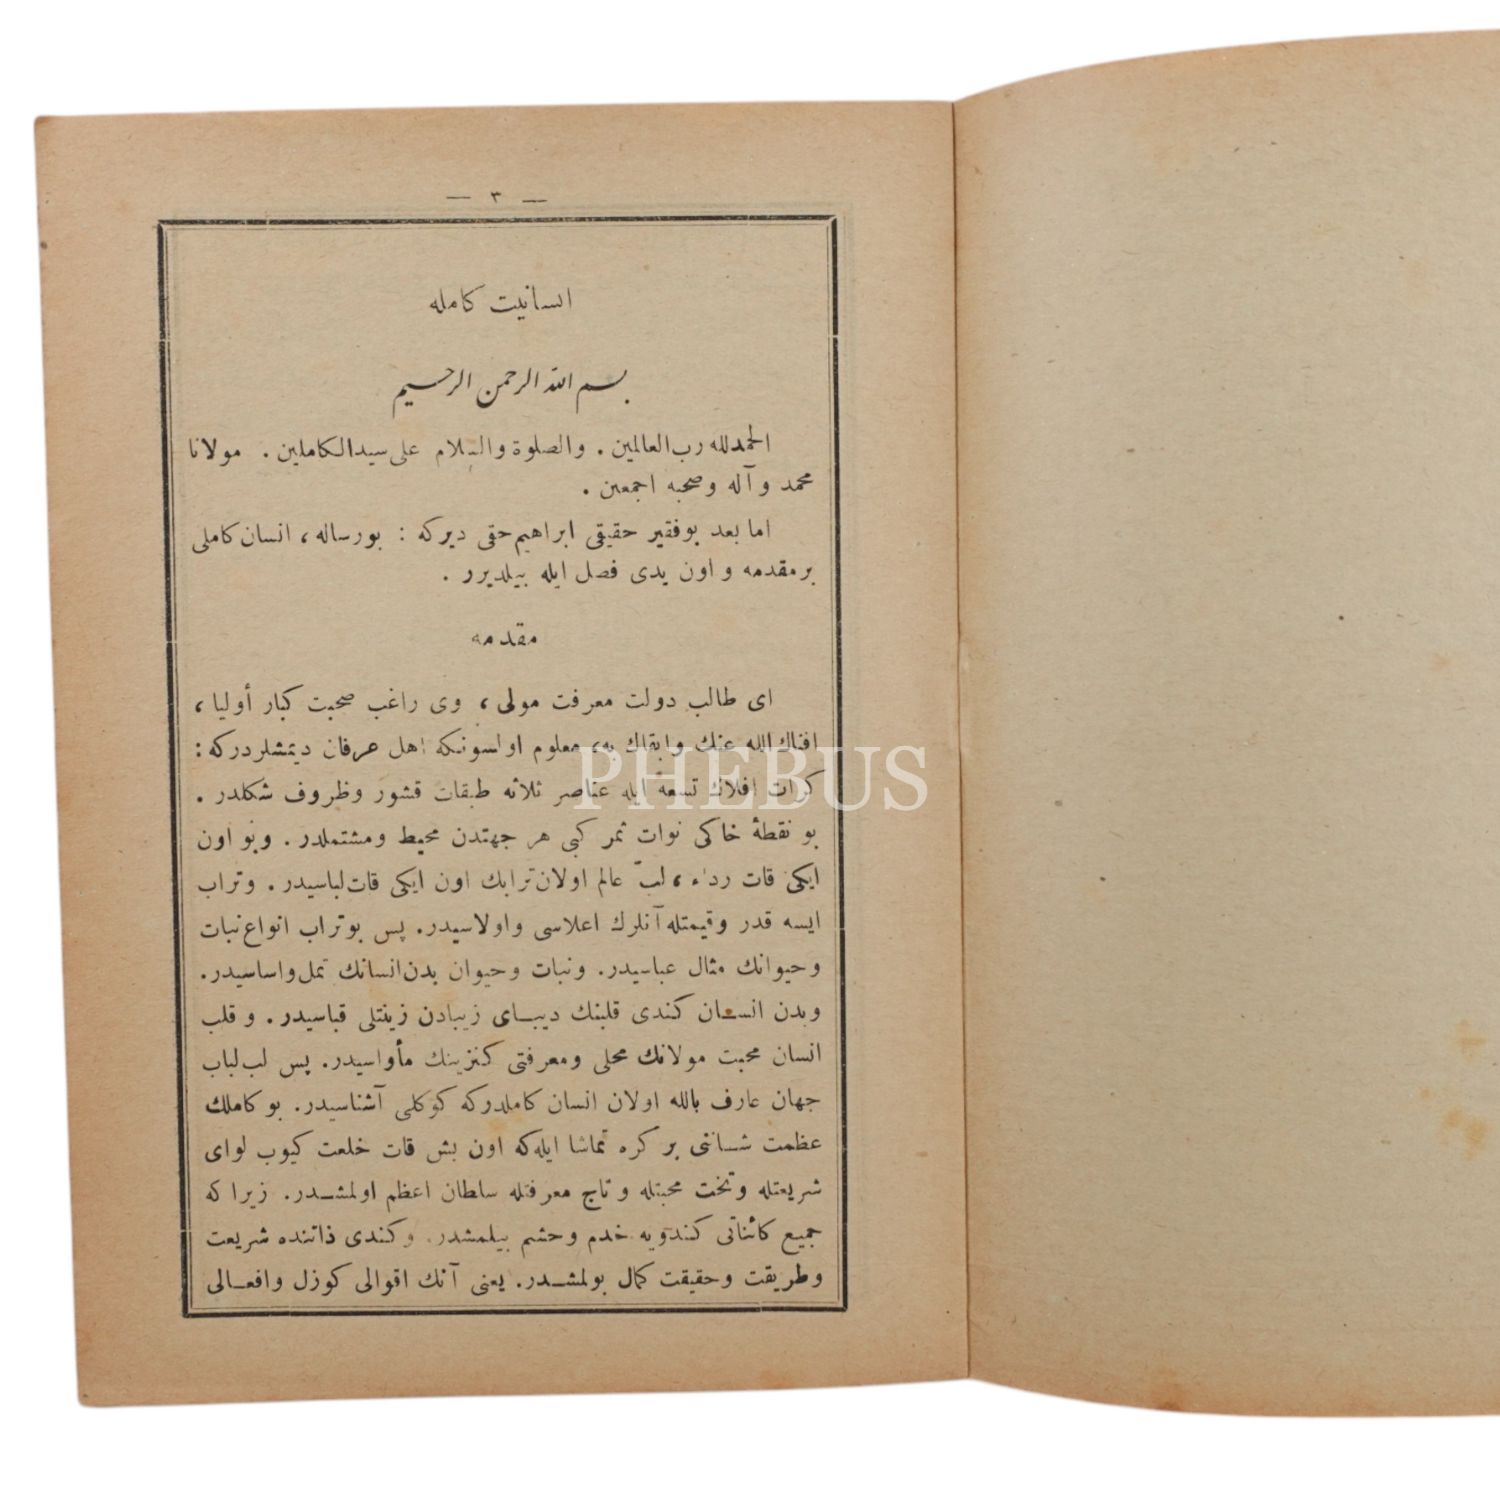 — ٣ —
انسانیت کامله
بسم الله الرحمن الرحیم
الحمدلله رب العالمین . والصلوة والسلام علی سیدالکاملین . مولانا
محمد وآله وصحبه اجمعین .
اما بعد بوفقیر حقیقی ابراهیم حقی دیرکه : بورساله ، انسان کاملی
بر مقدمه و اون یدی فصل ایله بیلدیرر .
مقدمه
ای طالب دولت معرفت مولی ، وی راغب صحبت کبار أولیا ،
افناك الله عنك وابقاك به ، معلوم اولسونکه اهل عرفان دیمشلردرکه :
کرات افلاك تسعه ایله عناصر ثلاثه طبقات قشور وظروف شکلدر .
بو نقطۀ خاکی نوات ثمر کبی هر جهتدن محیط ومشتملدر . وبو اون
ایکی قات رداء ، لبّ عالم اولان ترابك اون ایکی قات لباسیدر . وتراب
ایسه قدر وقیمتله آنلرك اعلاسی واولاسیدر . پس بوتراب انواع نبات
وحیوانك مثال عباسیدر . ونبات وحیوان بدن انسانك تمل واساسیدر .
وبدن انسان کندی قلبنك دیبای زیبادن زینتلی قباسیدر . وقلب
انسان محبت مولانك محلی ومعرفتی کنزینك مأواسیدر . پس لب لباب
جهان عارف بالله اولان انسان کاملدرکه کوکلی آشناسیدر . بو کاملك
عظمت شاننی بر کره تماشا ایله که اون بش قات خلعت کیوب لوای
شریعتله وتخت محبتله وتاج معرفتله سلطان اعظم اولمشدر . زیرا که
جمیع کائناتی کندویه خدم وحشم بیلمشدر . وکندی ذاتنده شریعت
وطریقت وحقیقت کمال بولمشدر . یعنی آنك اقوالی کوزل وافعالی
PHEBUS